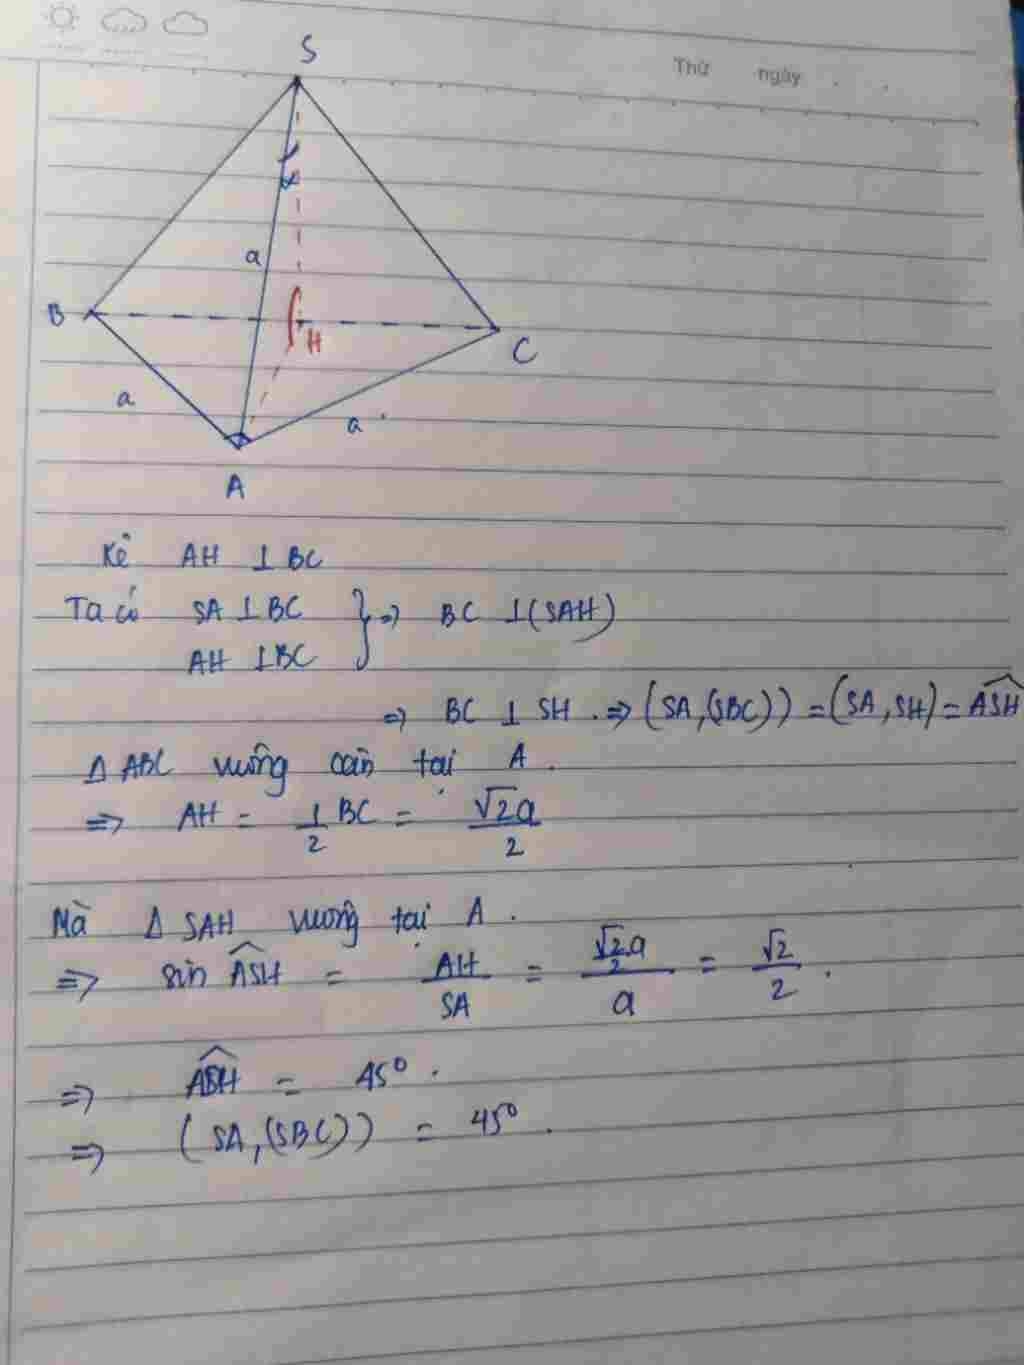 Thứ ngày
S
a
B
H
C
a
a
A
Kẻ AH ⊥ BC
Ta có SA ⊥ BC
AH ⊥ BC } => BC ⊥ (SAH)
=> BC ⊥ SH . => (SA,(SBC)) = (SA, SH) = \widehat{ASH}
Δ ABC vuông cân tại A.
=> AH = 1/2 BC = √2a/2
Mà Δ SAH vuông tại A.
=> sin \widehat{ASH} = AH/SA = (√2/2 a)/a = √2/2 .
=> \widehat{ASH} = 45° .
=> (SA,(SBC)) = 45° .